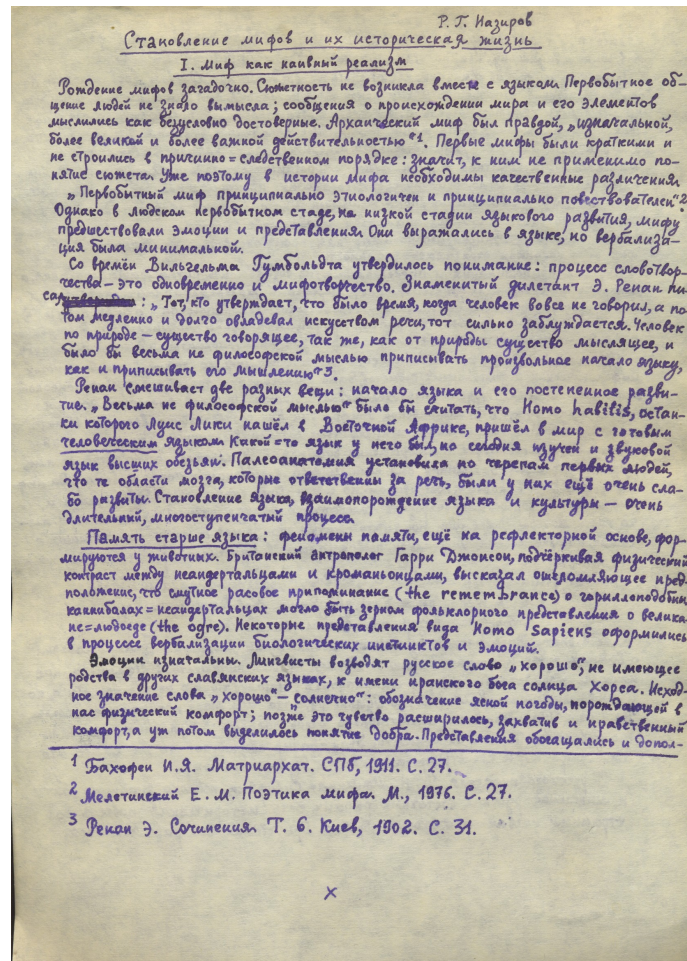 Р. Г. Назиров
Становление мифов и их историческая жизнь
I. Миф как наивный реализм
Рождение мифов загадочно. Сюжетность не возникла вместе с языком. Первобытное об-
щение людей не знало вымысла; сообщения о происхождении мира и его элементов
мыслились как безусловно достоверные. Архаический миф был правдой, „изначальной,
более великой и более важной действительностью“¹. Первые мифы были краткими и
не строились в причинно=следственном порядке: значит, к ним не применимо по-
нятие сюжета. Уже поэтому в истории мифа необходимы качественные различения.
„Первобытный миф принципиально этиологичен и принципиально повествователен“².
Однако в людском первобытном стаде, на низкой стадии языкового развития, мифу
предшествовали эмоции и представления. Они выражались в языке, но вербализа-
ция была минимальной.
Со времён Вильгельма Гумбольдта утвердилось понимание: процесс словотвор-
чества – это одновременно и мифотворчество. Знаменитый дилетант Э. Ренан пи-
сал: „Тот, кто утверждает, что было время, когда человек вовсе не говорил, а по-
том медленно и долго овладевал искусством речи, тот сильно заблуждается. Человек
по природе – существо говорящее, так же, как от природы существо мыслящее, и
было бы весьма не философской мыслью приписывать произвольное начало языку,
как и приписывать его мышлению“³.
Ренан смешивает две разных вещи: начало языка и его постепенное разви-
тие. „Весьма не философской мыслью“ было бы считать, что Homo habilis, остан-
ки которого Луис Лики нашёл в Восточной Африке, пришёл в мир с готовым
человеческим языком. Какой=то язык у него был, но сегодня изучен и звуковой
язык высших обезьян. Палеоанатомия установила по черепам первых людей,
что те области мозга, которые ответственны за речь, были у них ещё очень сла-
бо развиты. Становление языка, взаимопорождение языка и культуры – очень
длительный, многоступенчатый процесс.
Память старше языка: феномены памяти, ещё на рефлекторной основе, фор-
мируются у животных. Британский антрополог Гарри Джонсон, подчёркивая физический
контраст между неандертальцами и кроманьонцами, высказал ошеломляющее пред-
положение, что смутное расовое припоминание (the remembrance) о гориллоподобных
каннибалах=неандертальцах могло быть зерном фольклорного представления о велика-
не=людоеде (the ogre). Некоторые представления вида Homo Sapiens оформились
в процессе вербализации биологических инстинктов и эмоций.
Эмоции изначальны. Лингвисты возводят русское слово „хорошо“, не имеющее
родства в других славянских языках, к имени иранского бога солнца Хорса. Исход-
ное значение слова „хорошо“ – „солнечно“: обозначение ясной погоды, порождающей в
нас физический комфорт; позже это чувство расширилось, захватив и нравственный
комфорт, а уж потом выделилось понятие добра. Представления обогащались и допол-
¹ Бахофен И.Я. Матриархат. СПб, 1911. С. 27.
² Мелетинский Е. М. Поэтика мифа. М., 1976. С. 27.
³ Ренан Э. Сочинения. Т. 6. Киев, 1902. С. 31.
х